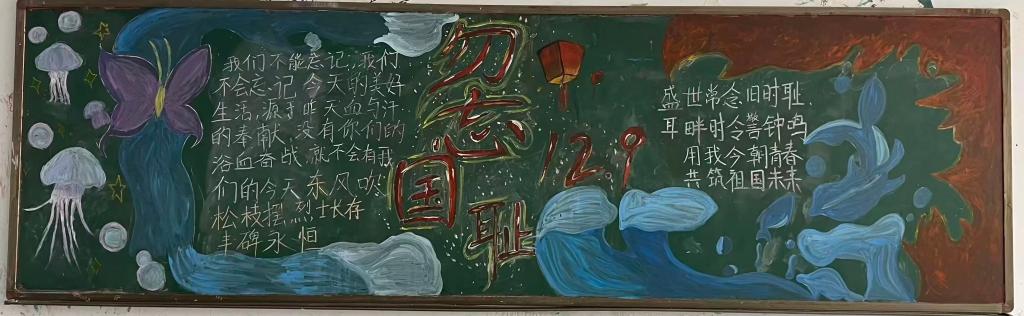 我们不能忘记,我们
不会忘记,今天的美好
生活,源于昨天血与汗
的奉献,没有你们的
浴血奋战,就不会有我
们的今天,东风吹
松枝摆,烈士长存
丰碑永恒
勿忘
国耻
12.9
盛世常念旧时耻
耳畔时令警钟鸣
用我今朝青春
共筑祖国未来